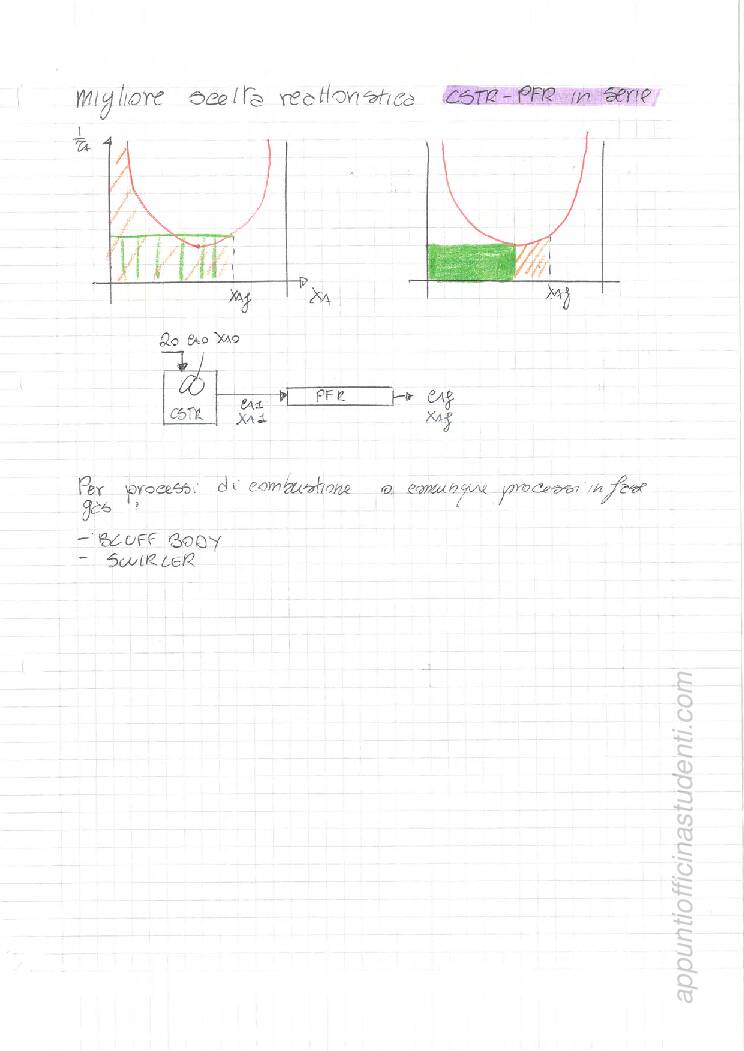 Migliore scelta reattoristica CSTR-PFR in serie
1
xAf
xA
xAf
CSTR
PFR
cA1
xA1
cAf
xAf
Per processi di combustione o comunque processi in fase
gas
- BLUFF BODY
- SWIRLER
appuntiofficinastudenti.com